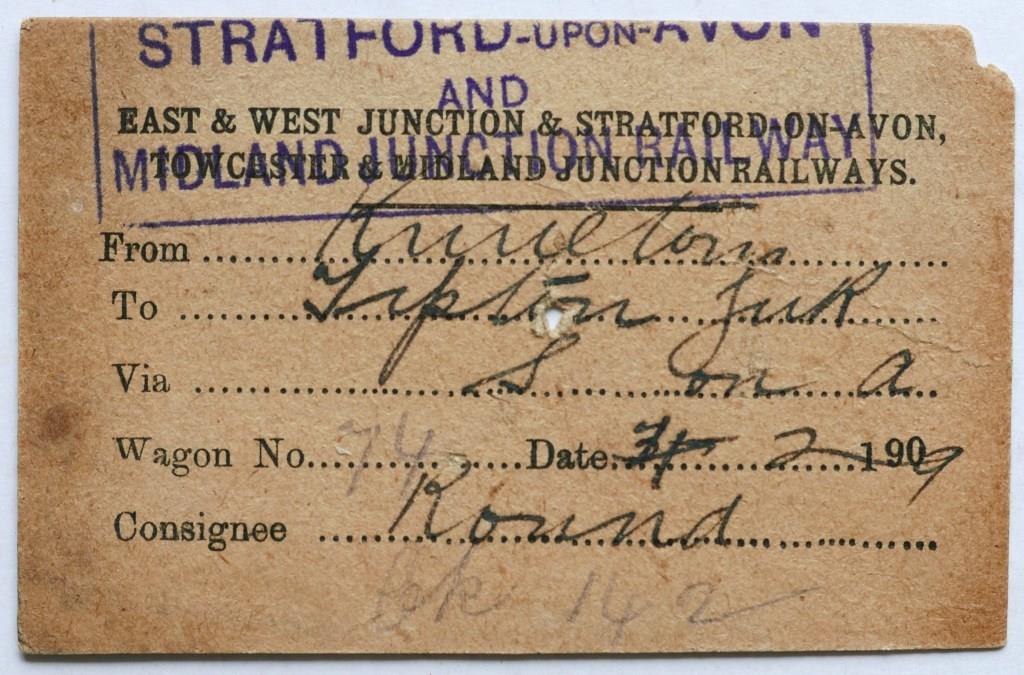 STRATFORD-UPON-AVON
AND
MIDLAND JUNCTION RAILWAY
EAST & WEST JUNCTION & STRATFORD-ON-AVON,
TOWCESTER & MIDLAND JUNCTION RAILWAYS.
From
To Tipton
Via S on A
Wagon No. 74 Date 2 1909
Consignee Round
142